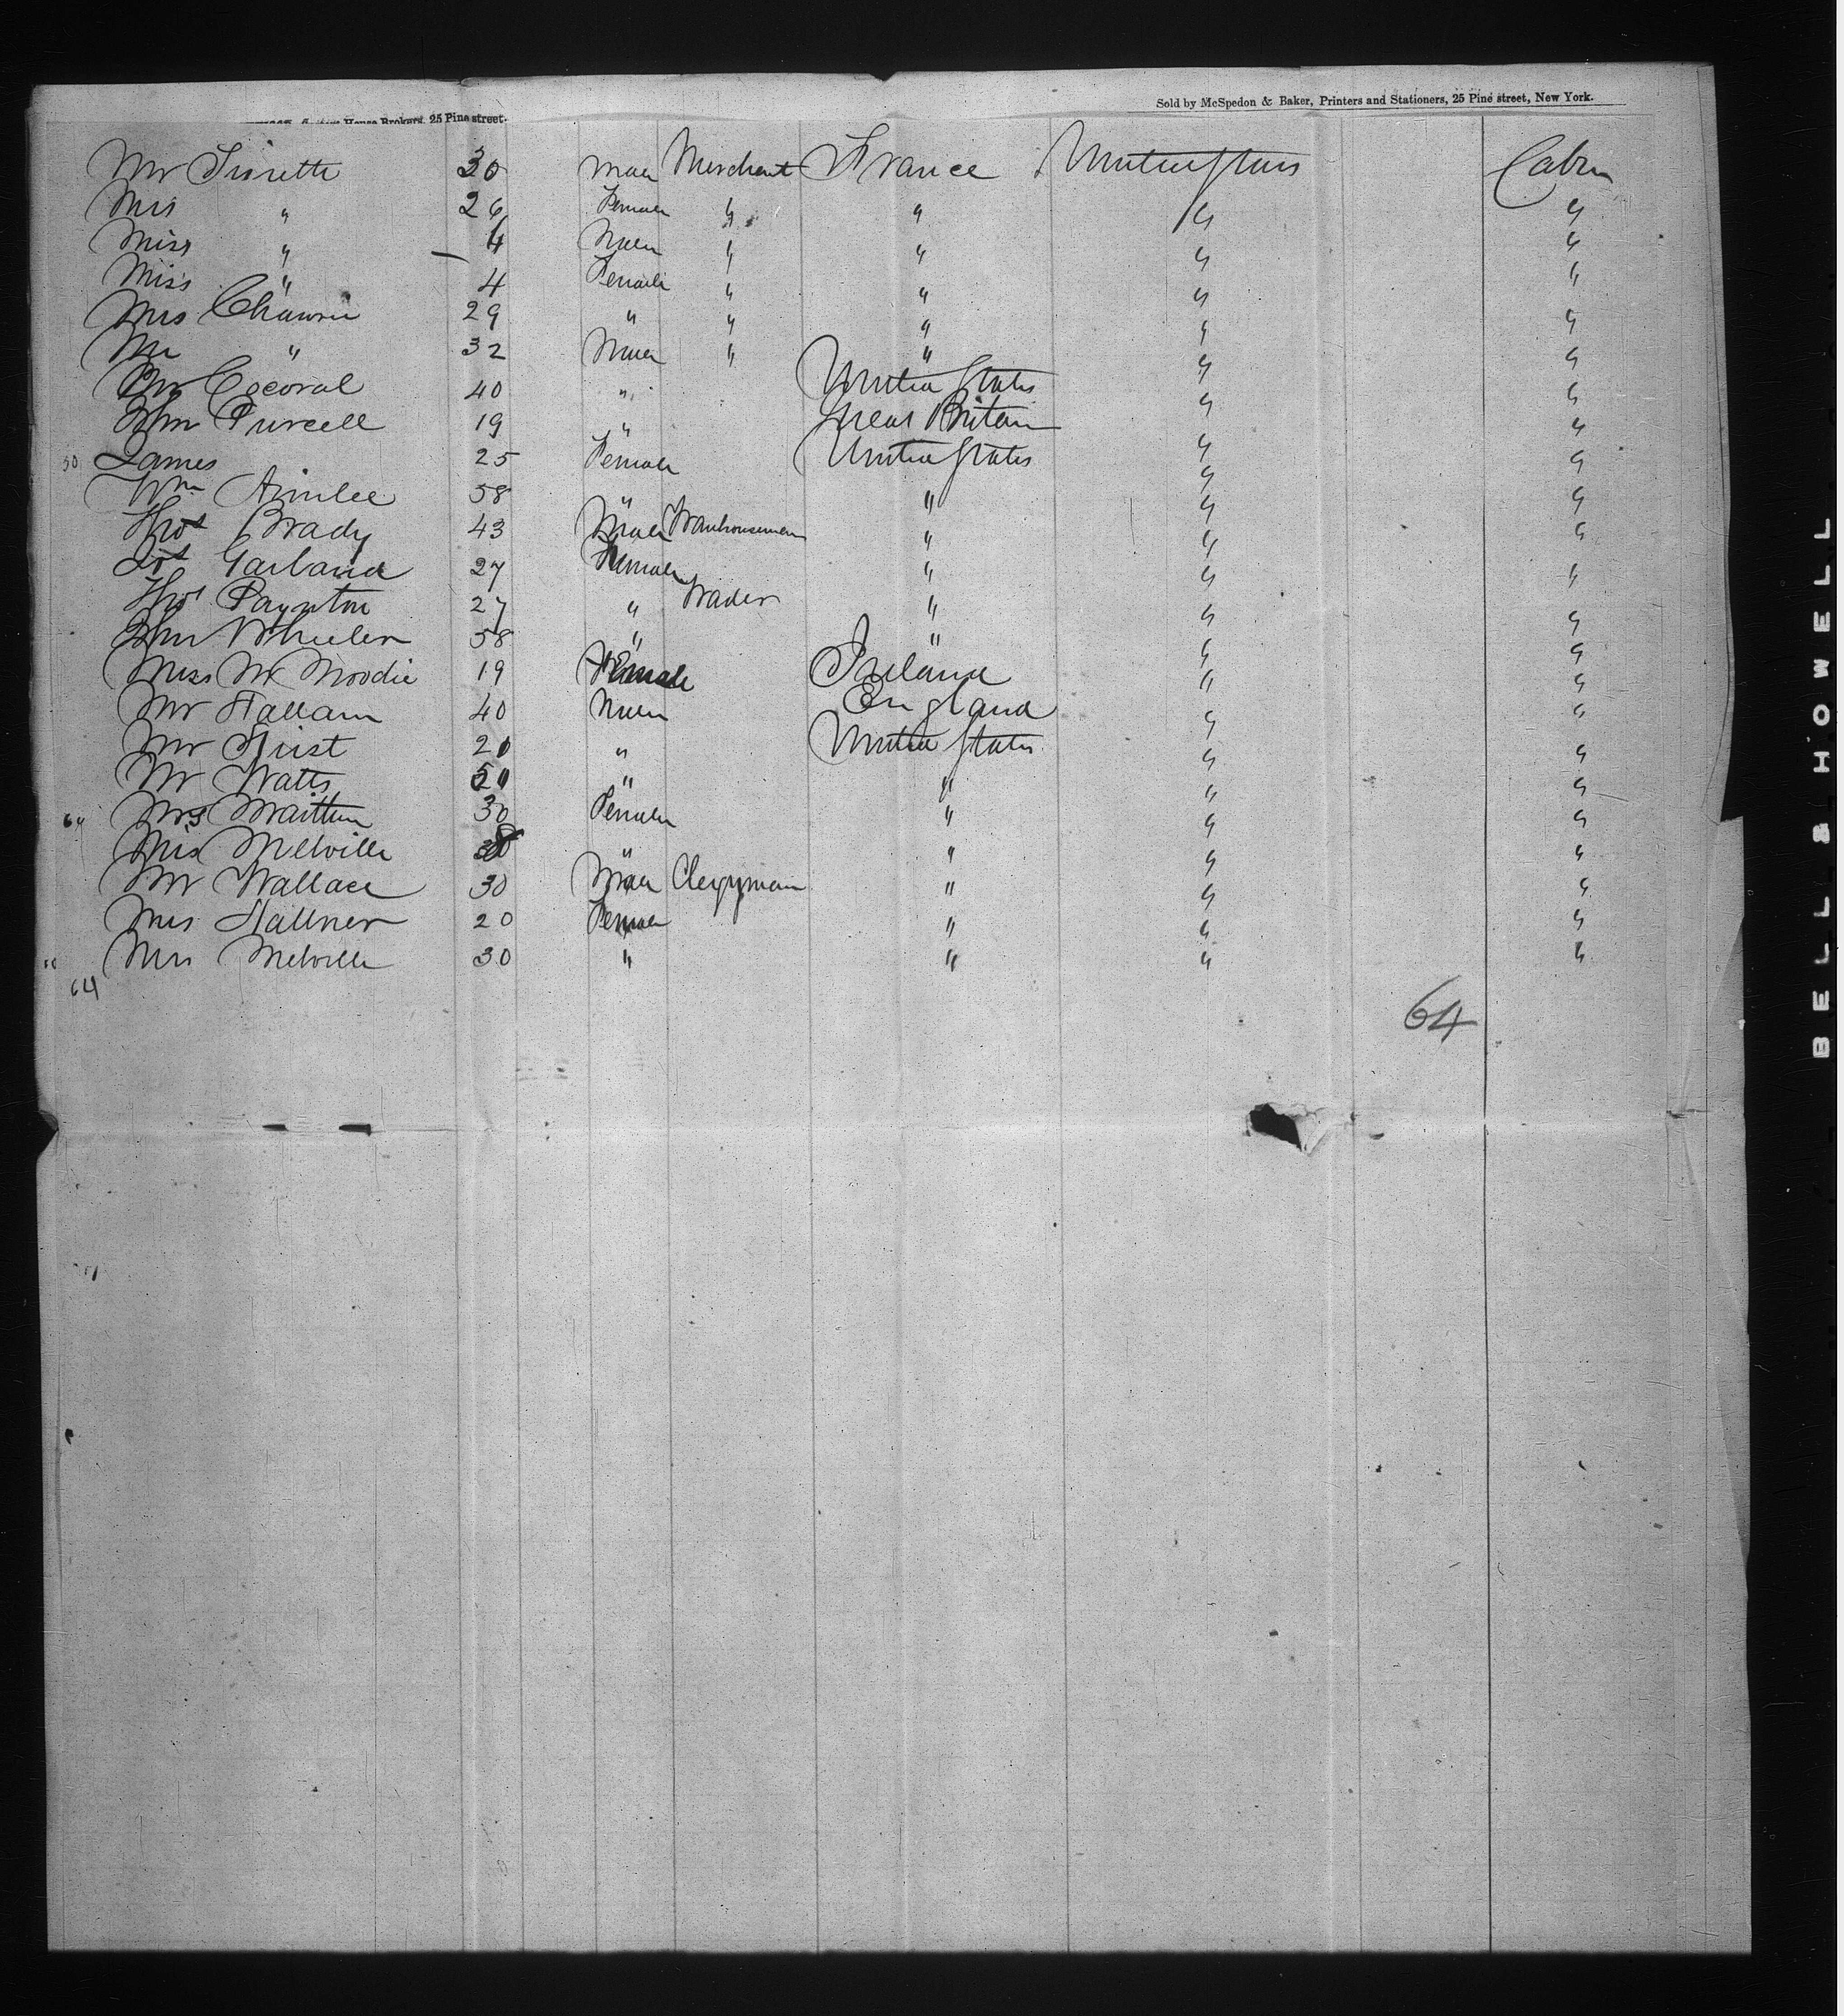 Sold by McSpedon & Baker, Printers and Stationers, 25 Pine street, New York.
House Brokers, 25 Pine street.
Mr 30 Male Merchant France United States Cabin
Mrs " 26 Female " " " "
Miss " 4 Male " " " "
Miss " 4 Female " " " "
Mrs 29 " " " " "
Mr " 32 Male " " " "
Mr Cocoral 40 " United States " "
Wm Purcell 19 " Great Britain " "
50 James 25 Female United States " "
Wm Aimlee 58 " " " "
Thos Brady 43 Male Warehouseman " " "
Jos Garland 27 Female " " "
Thos Paynton 27 " Trader " " "
Wm Wheeler 58 " " " "
Miss M Moodie 19 Female Ireland " "
Mr Hallam 40 Male England " "
Mr Hirst 20 " United States " "
Mr Watts " " " "
Mrs 30 Female " " "
Miss Melville " " " "
Mr Wallace 30 Male Clergyman " " "
Mrs Hallner 20 Female " " "
" Mrs Melville 30 " " " "
64
64
BELL & HOWELL